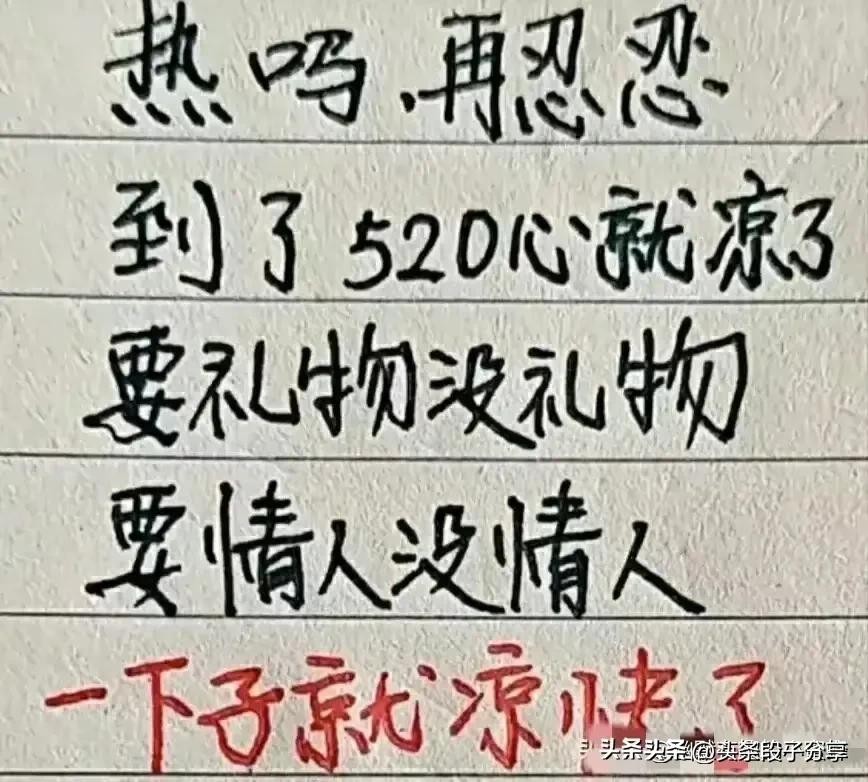 热吗.再忍忍
到了520心就凉了
要礼物没礼物
要情人没情人
一下子就凉快了
头条 @头条段子分享